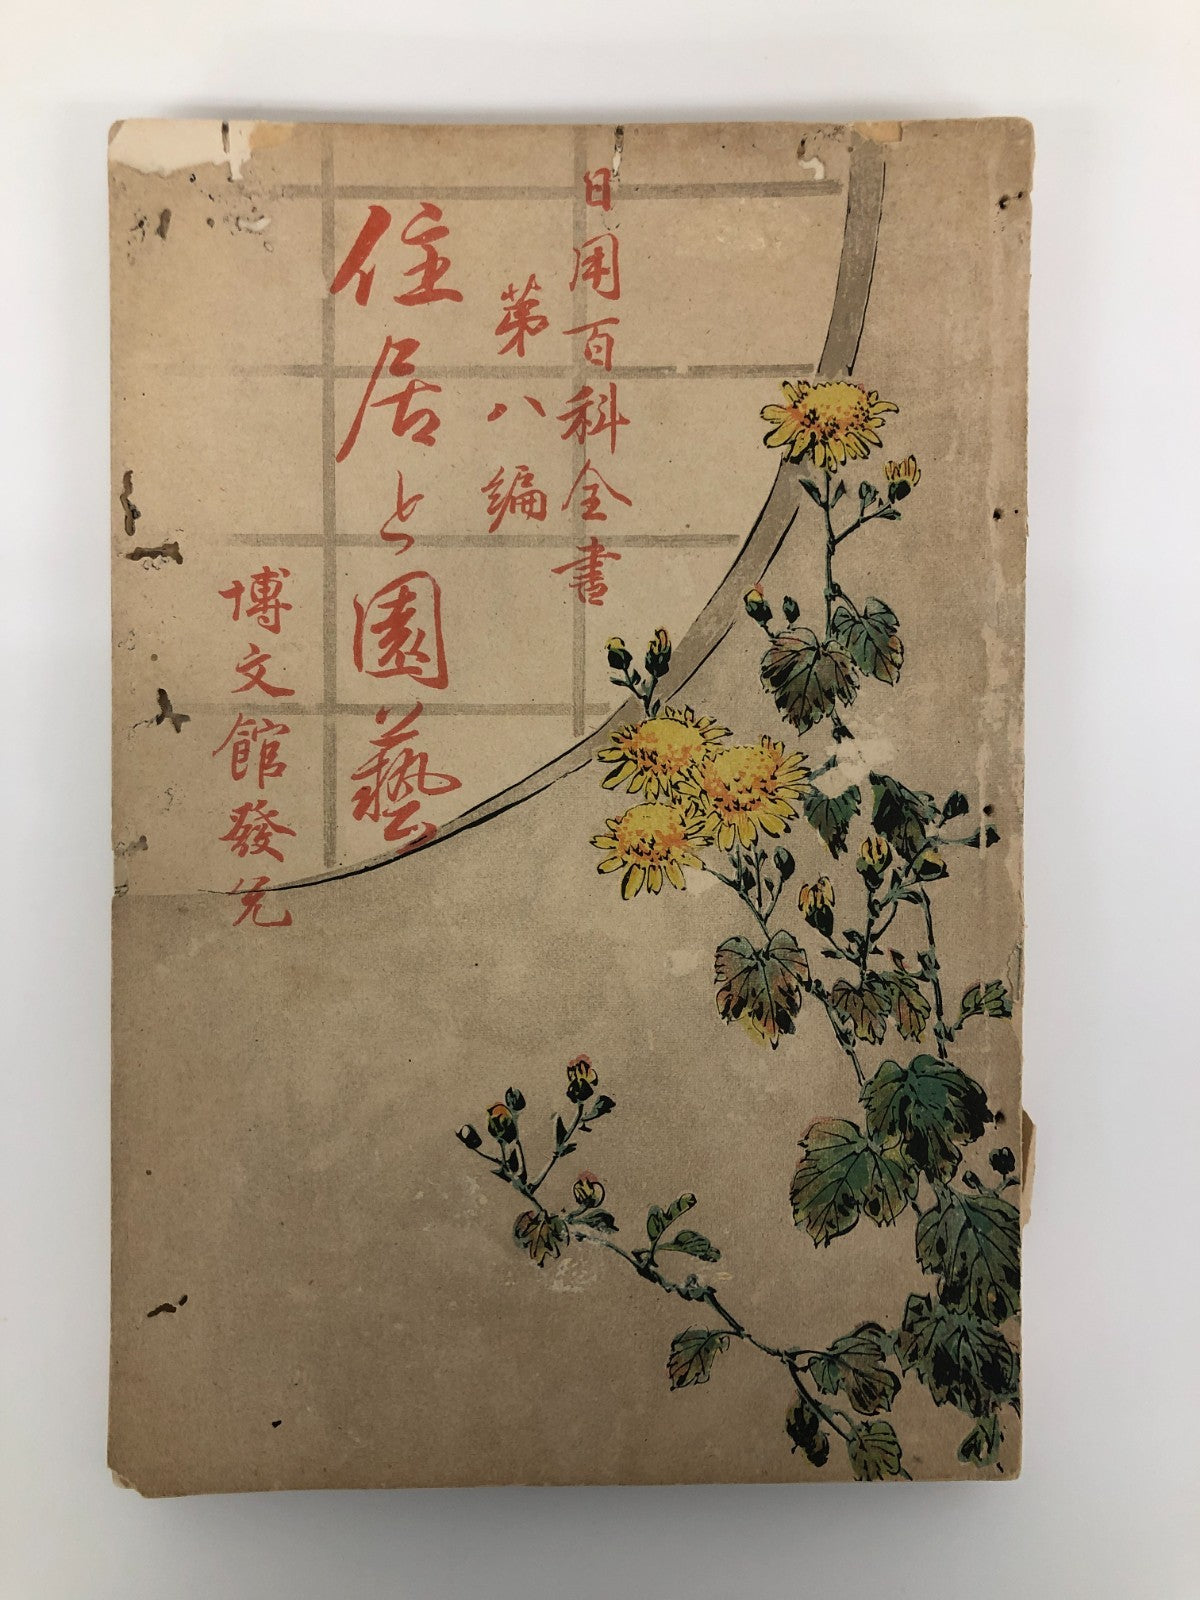 日用百科全書
第八編
住居と園藝
博文館發兌